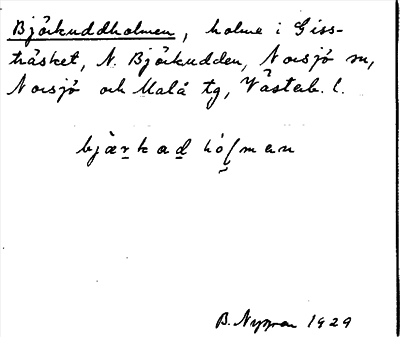 Björkuddholmen, holme i Giss-
träsket, N. Björkudden, Norsjö sn,
Norsjö och Malå tg, Västerb. l.
bjärkad hóļman
B. Nyman 1929